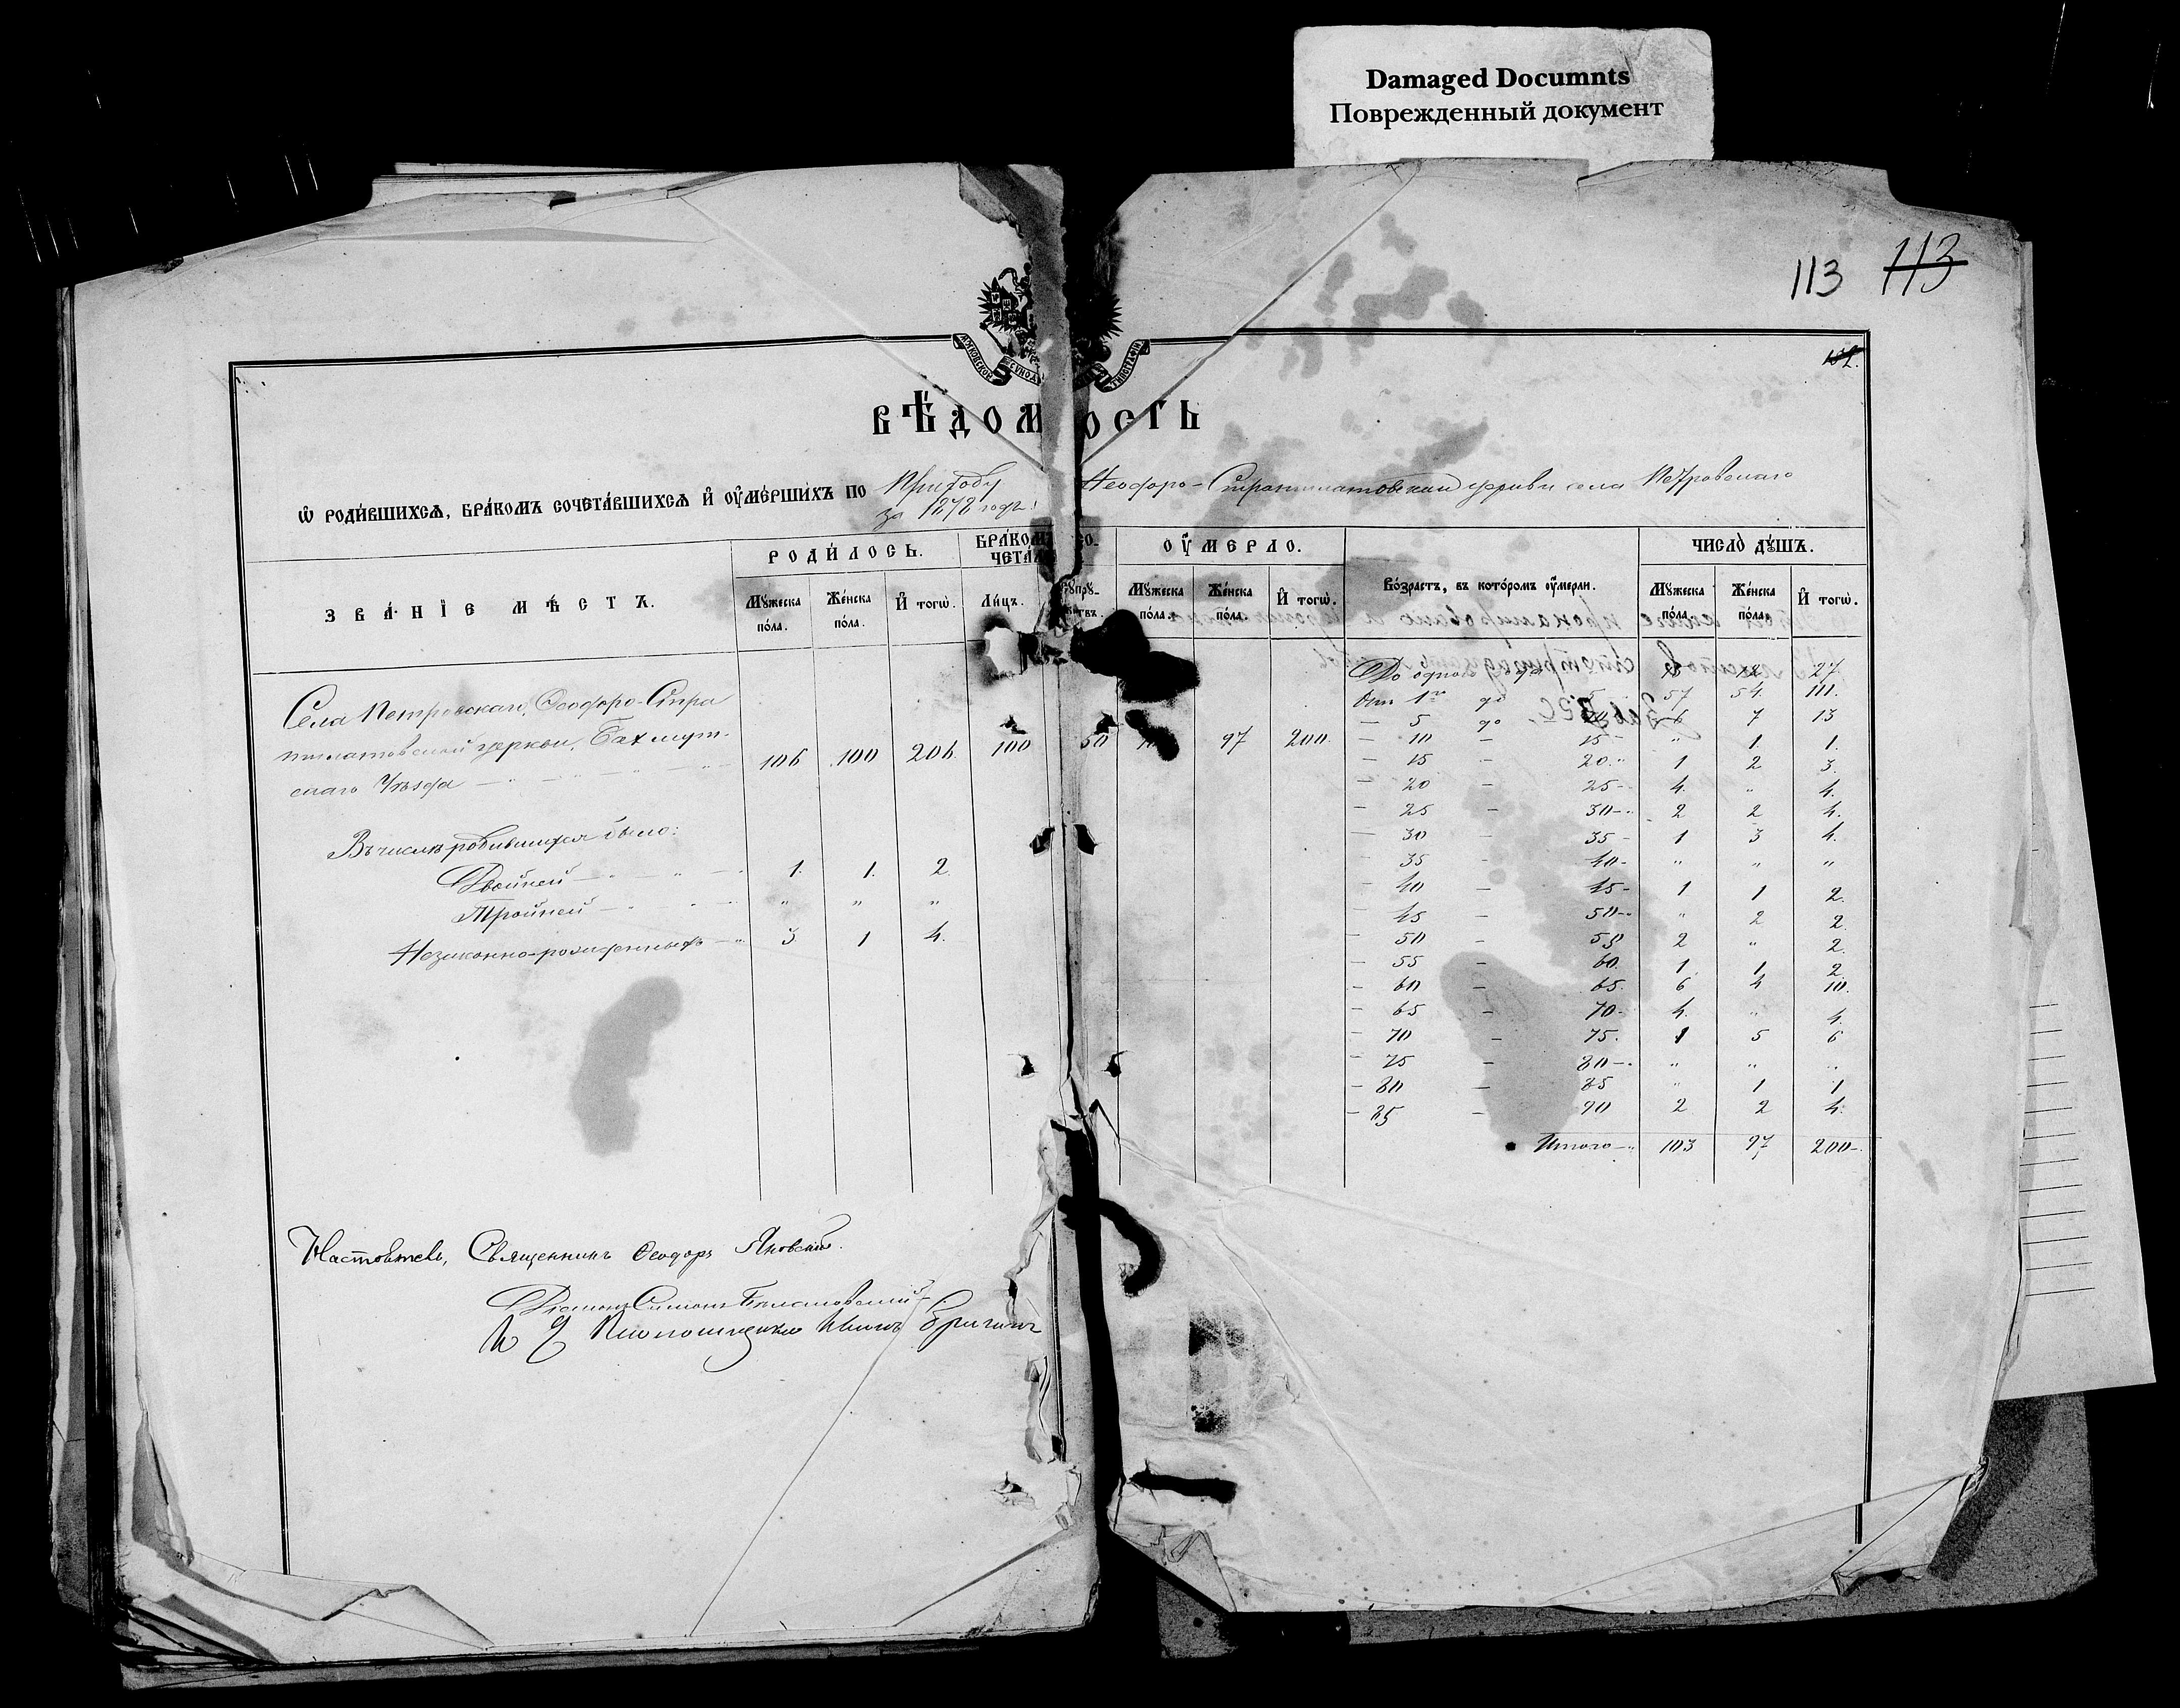 Damaged Documnts
Поврежденный документ
113 113
ВѢДОМОСТЬ
Ѡ РОДИВШИХСЯ, БРАКОМЪ СОЧЕТАВШИХСЯ Й ОУМЕРШИХЪ ПО Приходу Феодоро-Стратилатовской церкви села Петровскаго
за 1878 годъ
ЗВАНІЕ МѢСТЪ. РОДИЛОСЬ. БРАКОМЪ СО-ЧЕТА ОУМЕРЛО. Возрастъ, въ которомъ оумерли. ЧИСЛО ДУШЪ.
Мужеска пола. Женска пола. Й тогѡ. Лицъ. Супру- Мужеска пола. Женска пола. Й тогѡ. Мужеска пола. Женска пола. Й тогѡ.
Села Петровскаго, Феодоро-Стра
тилатовской церкви, Бахмут-
скаго Уѣзда 106 100 206 100 50 97 200
Въ числѣ родившихся было:
Двойней 1. 1. 2.
Тройней " " "
Незаконно-рожденныхъ 3 1 4.
До одного года 27
Отъ 1го до 5 57 54. 111.
— 5 до 6 7 13
— 10 — 15 " 1. 1.
— 15 — 20 1 2 3.
— 20 — 25 4. " 4.
— 25 — 30 2 2 4.
— 30 — 35 1 3 4.
— 35 — 40 " " "
— 40 — 45 1 1 2.
— 45 — 50 " 2 2.
— 50 — 55 2 " 2.
— 55 — 60 1 1 2
— 60 — 65 6 4 10.
— 65 — 70 4. " 4.
— 70 — 75 1 5 6
— 75 — 80 " " "
— 80 — 85 " 1 1
— 85 — 90 2 2 4.
Итого 103 97 200
Настоятель, Священникъ Феодоръ Яновскій.
Діаконъ Симонъ
И Д Псаломщика Иванъ